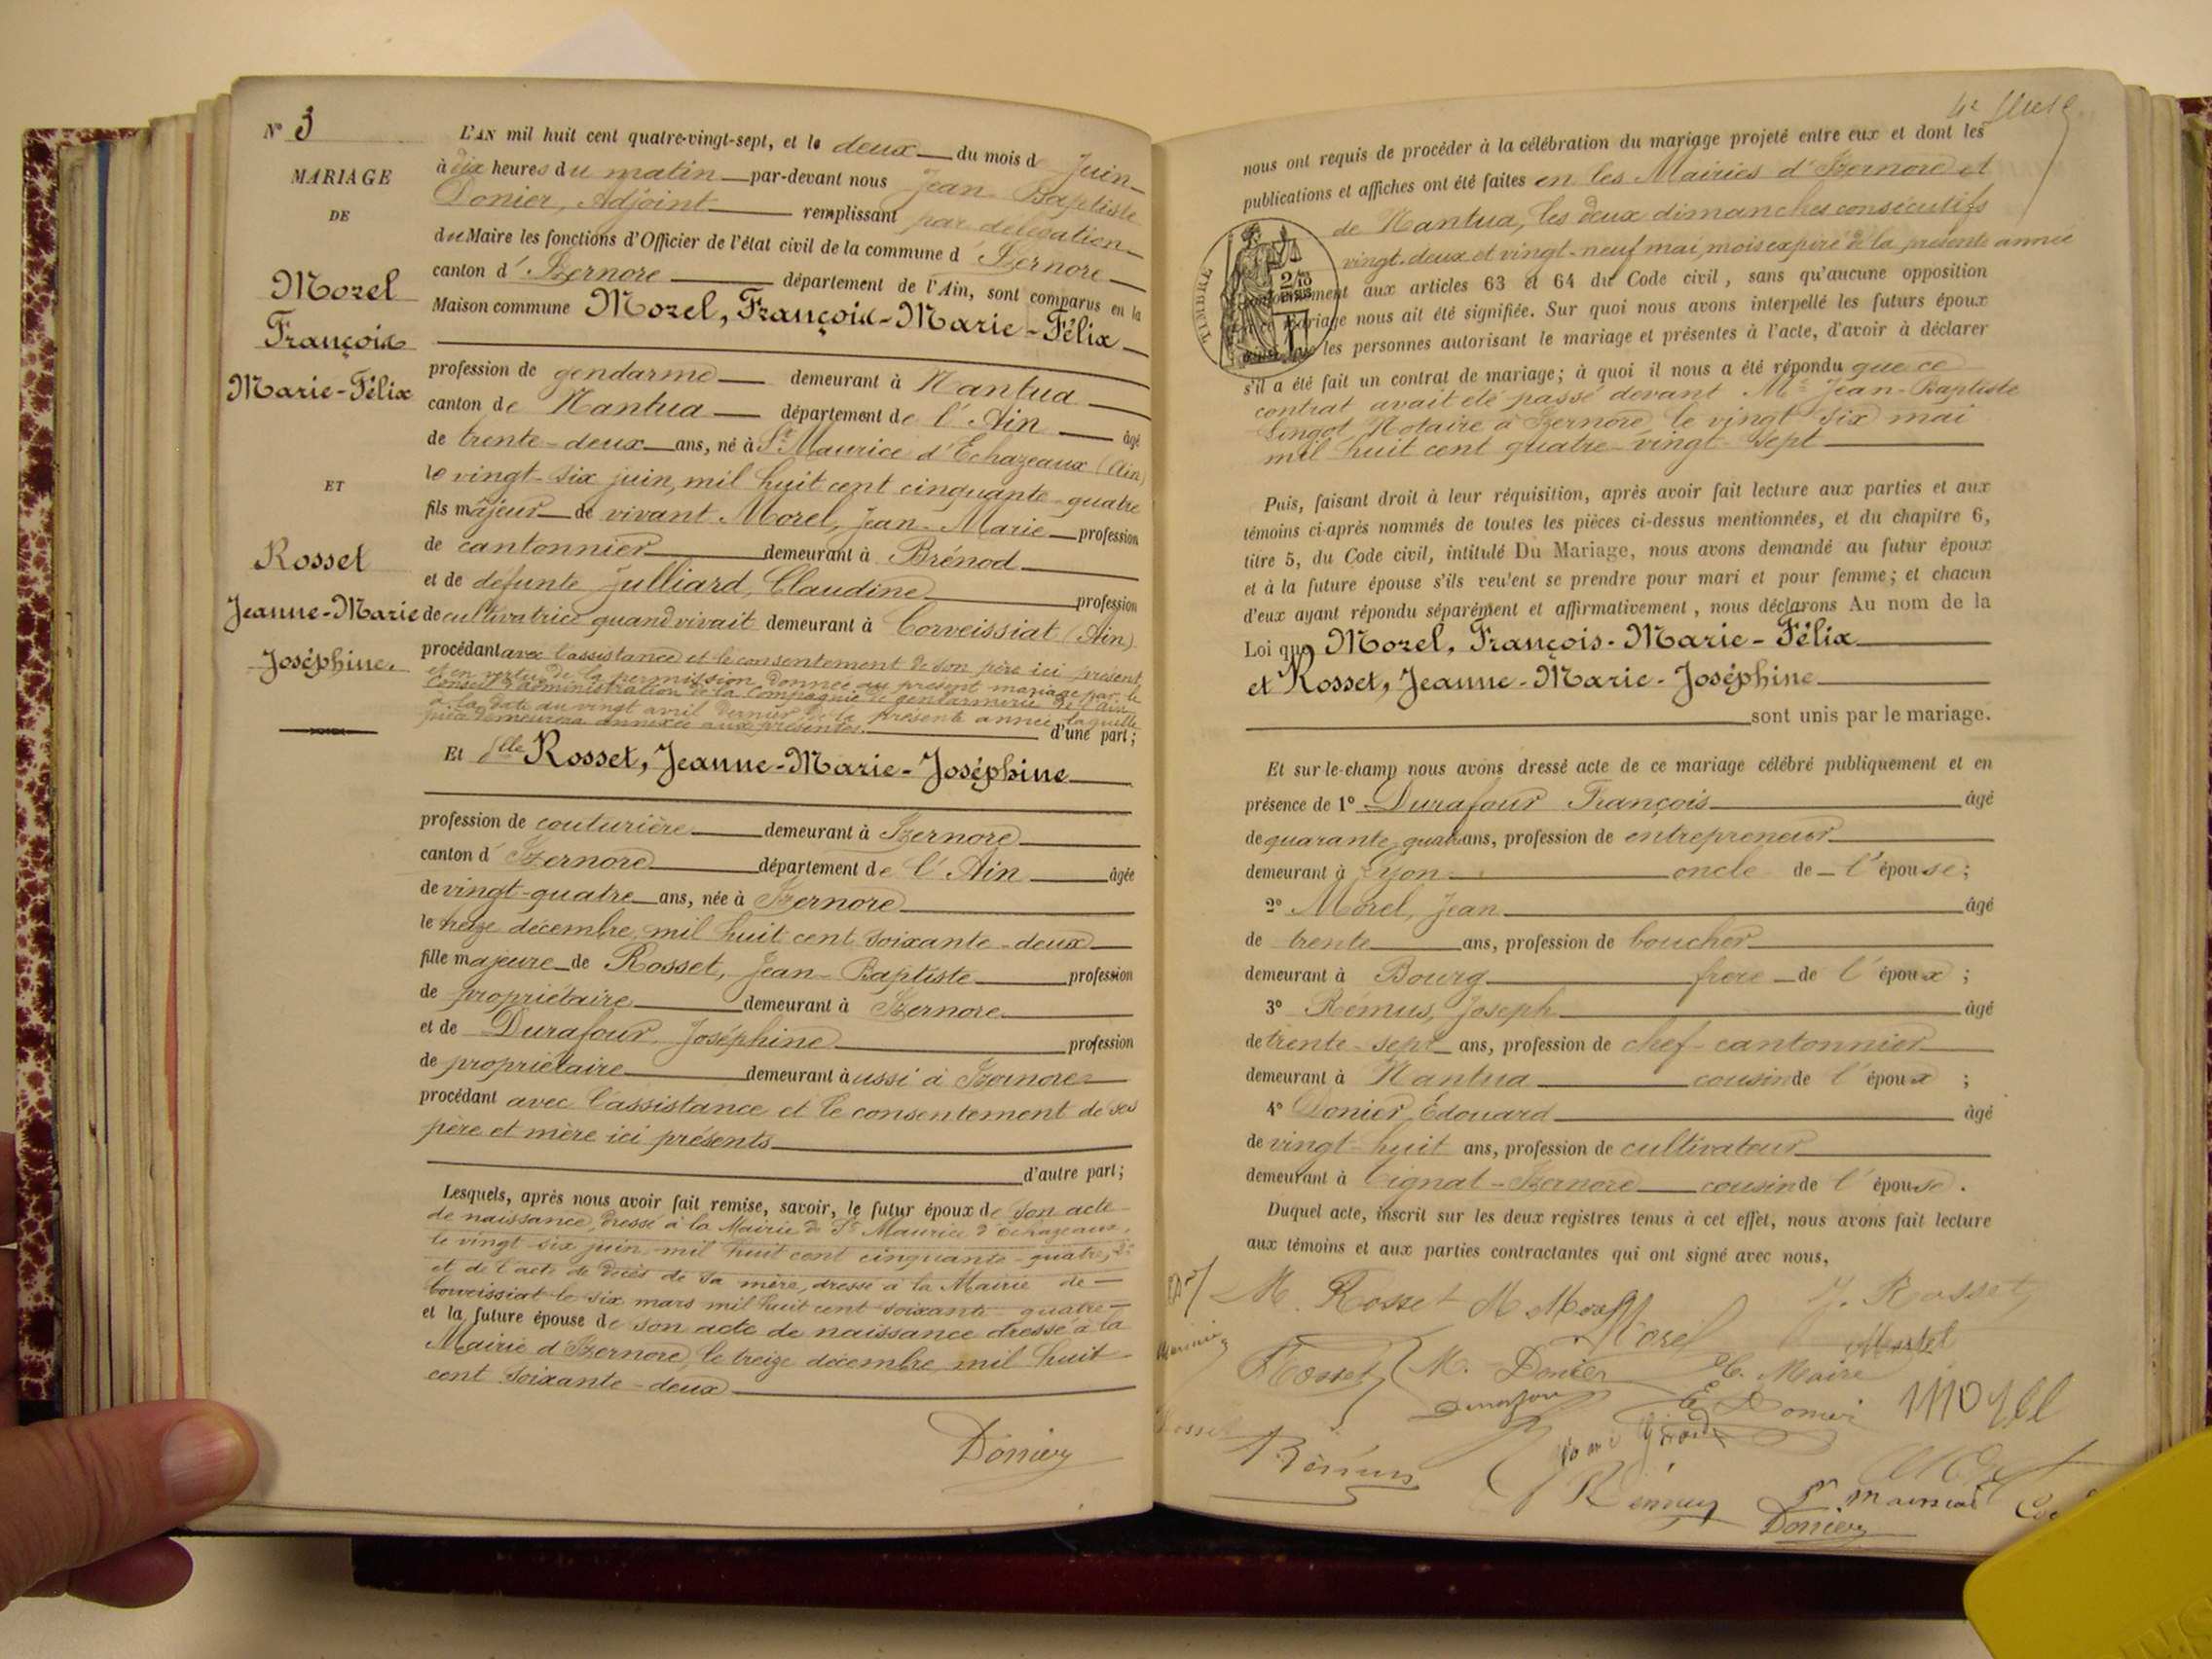 N° 3
MARIAGE
DE
Morel
François
Marie-Félix
ET
Rosset
Jeanne-Marie
Joséphine
L'AN mil huit cent quatre-vingt-sept, et le deux du mois de Juin
à dix heures du matin par-devant nous Jean-Baptiste
Donier, Adjoint remplissant par délégation
du Maire les fonctions d'Officier de l'état civil de la commune d'Izernore
canton d'Izernore département de l'Ain, sont comparus en la
Maison commune Morel, François-Marie-Félix
profession de gendarme demeurant à Nantua
canton de Nantua département de l'Ain âgé
de trente-deux ans, né à St Maurice d'Echazeaux (Ain)
le vingt-six juin, mil huit cent cinquante-quatre
fils majeur de vivant Morel, Jean-Marie profession
de cantonnier demeurant à Brénod
et de défunte Julliard, Claudine profession
de cultivatrice quand vivait demeurant à Corveissiat (Ain)
procédant avec l'assistance et le consentement de son père ici présent
et en vertu de la permission donnée au présent mariage par le
Conseil d'administration de la Compagnie de gendarmerie de l'Ain
à la date du vingt avril dernier de la présente année, laquelle
demeurera annexée aux présentes. d'une part;
Et Dlle Rosset, Jeanne-Marie-Joséphine
profession de couturière demeurant à Izernore
canton d'Izernore département de l'Ain âgée
de vingt-quatre ans, née à Izernore
le treize décembre mil huit cent soixante-deux
fille majeure de Rosset, Jean-Baptiste profession
de propriétaire demeurant à Izernore
et de Durafour, Joséphine profession
de propriétaire demeurant aussi à Izernore
procédant avec l'assistance et le consentement de ses
père et mère ici présents
d'autre part;
Lesquels, après nous avoir fait remise, savoir, le futur époux de son acte
de naissance, dressé à la Mairie de St Maurice d'Echazeaux,
le vingt-six juin mil huit cent cinquante-quatre, 2°
et de l'acte de décès de sa mère, dressé à la Mairie de
Corveissiat le six mars mil huit cent soixante-quatre
et la future épouse de son acte de naissance dressé à la
Mairie d'Izernore, le treize décembre mil huit
cent soixante-deux
Donier
nous ont requis de procéder à la célébration du mariage projeté entre eux et dont les
publications et affiches ont été faites en les Mairies d'Izernore et
de Nantua, les deux dimanches consécutifs
vingt-deux et vingt-neuf mai, mois expiré de la présente année
TIMBRE
conformément aux articles 63 et 64 du Code civil, sans qu'aucune opposition
mariage nous ait été signifiée. Sur quoi nous avons interpellé les futurs époux
les personnes autorisant le mariage et présentes à l'acte, d'avoir à déclarer
s'il a été fait un contrat de mariage; à quoi il nous a été répondu que ce
contrat avait été passé devant Me Jean-Baptiste
Notaire à Izernore, le vingt-six mai
mil huit cent quatre-vingt-sept
Puis, faisant droit à leur réquisition, après avoir fait lecture aux parties et aux
témoins ci-après nommés de toutes les pièces ci-dessus mentionnées, et du chapitre 6,
titre 5, du Code civil, intitulé Du Mariage, nous avons demandé au futur époux
et à la future épouse s'ils veulent se prendre pour mari et pour femme; et chacun
d'eux ayant répondu séparément et affirmativement, nous déclarons Au nom de la
Loi que Morel, François-Marie-Félix
et Rosset, Jeanne-Marie-Joséphine
sont unis par le mariage.
Et sur-le-champ nous avons dressé acte de ce mariage célébré publiquement et en
présence de 1° Durafour François âgé
de quarante-quatre ans, profession de entrepreneur
demeurant à Lyon oncle de l'épouse;
2° Morel, Jean âgé
de trente ans, profession de boucher
demeurant à Bourg frère de l'époux;
3° Rémus, Joseph âgé
de trente-sept ans, profession de chef-cantonnier
demeurant à Nantua cousin de l'époux;
4° Donier, Édouard âgé
de vingt-huit ans, profession de cultivateur
demeurant à Cignat-Izernore cousin de l'épouse.
Duquel acte, inscrit sur les deux registres tenus à cet effet, nous avons fait lecture
aux témoins et aux parties contractantes qui ont signé avec nous,
M. Rosset M Morel J. Rosset
Morel
Rosset M. Donier C. Maire
E Donier
Rémus
Rémus
Donier